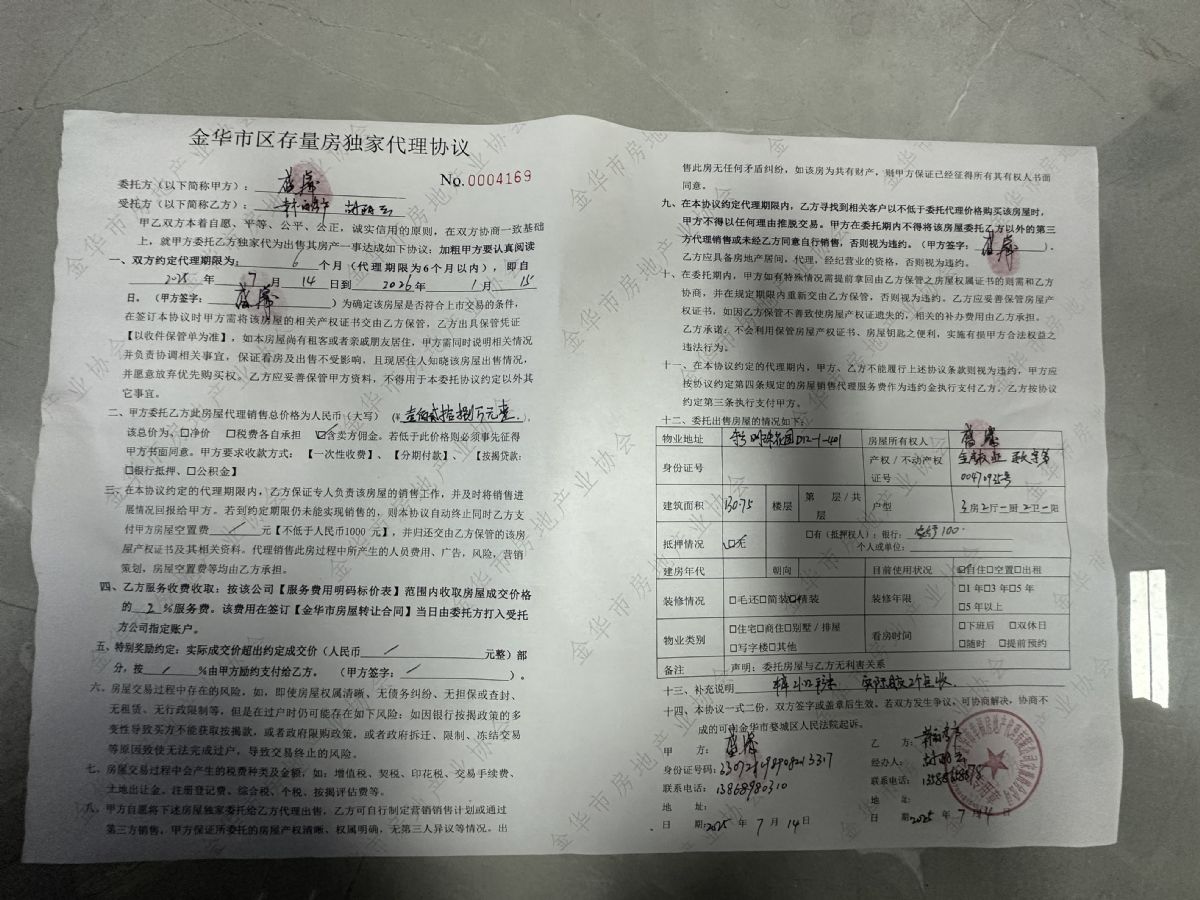 金华市区存量房独家代理协议
No.0004169
委托方（以下简称甲方）：
受托方（以下简称乙方）：
甲乙双方本着自愿、平等、公平、公正，诚实信用的原则，在双方协商一致基础
上，就甲方委托乙方独家代为出售其房产一事达成如下协议：加粗甲方要认真阅读
一、双方约定代理期限为： 6 个月（代理期限为6个月以内），即自
2025 年 7 月 14 日到 2026 年 1 月 15
日。（甲方签字： ）为确定该房屋是否符合上市交易的条件，
在签订本协议时甲方需将该房屋的相关产权证书交由乙方保管，乙方出具保管凭证
【以收件保管单为准】，如本房屋尚有租客或者亲戚朋友居住，甲方需同时说明相关情况
并负责协调相关事宜，保证看房及出售不受影响，且现居住人知晓该房屋出售情况，
并愿意放弃优先购买权。乙方应妥善保管甲方资料，不得用于本委托协议约定以外其
它事宜。
二、甲方委托乙方此房屋代理销售总价格为人民币（大写）（¥ 壹佰贰拾捌万元整 ），
该总价为：□净价 □税费各自承担 ☑含卖方佣金。若低于此价格则必须事先征得
甲方书面同意。甲方要求收款方式：【一次性收费】、【分期付款】、【按揭贷款：
□银行抵押、□公积金】
三、在本协议约定的代理期限内，乙方保证专人负责该房屋的销售工作，并及时将销售进
展情况回报给甲方。若到约定期限仍未能实现销售的，则本协议自动终止同时乙方支
付甲方房屋空置费 / 元【不低于人民币1000 元】，并归还交由乙方保管的该房
屋产权证书及其相关资料。代理销售此房过程中所产生的人员费用、广告，风险，营销
策划，房屋空置费等均由乙方承担。
四、乙方服务收费收取：按该公司【服务费用明码标价表】范围内收取房屋成交价格
的 2 %服务费。该费用在签订【金华市房屋转让合同】当日由委托方打入受托
方公司指定账户。
五、特别奖励约定：实际成交价超出约定成交价（人民币 / 元整）部
分，按 / %由甲方励约支付给乙方。（甲方签字： / ）。
六、房屋交易过程中存在的风险，如，即使房屋权属清晰、无债务纠纷、无担保或查封、
无租赁、无行政限制等，但是在过户时仍可能存在如下风险：如因银行按揭政策的多
变性导致买方不能获取按揭款，或者政府限购政策，或者政府拆迁、限制、冻结交易
等原因致使无法完成过户，导致交易终止的风险。
七、房屋交易过程中会产生的税费种类及金额，如：增值税、契税、印花税、交易手续费、
土地出让金、注册登记费、综合税、个税、按揭评估费等。
八、甲方自愿将下述房屋独家委托给乙方代理出售，乙方可自行制定营销销售计划或通过
第三方销售，甲方保证所委托的房屋产权清晰、权属明确，无第三人异议等情况。出
售此房无任何矛盾纠纷，如该房为共有财产，则甲方保证已经征得所有其有权人书面
同意。
九、在本协议约定代理期限内，乙方寻找到相关客户以不低于委托代理价格购买该房屋时，
甲方不得以任何理由推脱交易。甲方在委托期内不得将该房屋委托乙方以外的第三
方代理销售或未经乙方同意自行销售，否则视为违约。（甲方签字： ）.
乙方应具备房地产居间，代理，经纪营业的资格，否则视为违约。
十、在委托期内，甲方如有特殊情况需提前拿回由乙方保管之房屋权属证书的则需和乙方
协商，并在规定期限内重新交由乙方保管，否则视为违约。乙方应妥善保管房屋产
权证书，如因乙方保管不善致使房屋产权证遗失的，相关的补办费用由乙方承担。
乙方承诺：不会利用保管房屋产权证书、房屋钥匙之便利，实施有损甲方合法权益之
违法行为。
十一、在本协议约定的代理期内，甲方、乙方不能履行上述协议条款则视为违约，甲方应
按协议约定第四条规定的房屋销售代理服务费作为违约金执行支付乙方。乙方按协议
约定第三条执行支付甲方。
十二、委托出售房屋的情况如下：
物业地址 明珠花园D12-1-401 房屋所有权人
身份证号 产权/不动产权证号 00470925号
建筑面积 130.75 楼层 第 层/共 层 户型 3房2厅一厨2卫一阳
抵押情况 ☑无 □有（抵押权人）：银行： 100.
个人或单位：
建房年代 朝向 目前使用状况 ☑自住□空置□出租
装修情况 □毛还□简装☑精装 装修年限 □1年□3年□5年
□5年以上
物业类别 □住宅□商住□别墅/排屋
□写字楼□其他: 看房时间 □下班后 □双休日
□随时 □提前预约
备注 声明：委托房屋与乙方无利害关系
十三、补充说明
十四、本协议一式二份，双方签字或盖章后生效，若双方发生争议，可协商解决，协商不
成的可向金华市婺城区人民法院起诉。
甲 方：
身份证号码：330721198908213317
联系电话：13868980310
地 址：
日 期：2025 年 7 月 14 日
乙 方：
经办人：
联系电话：13585868678
地 址：
日 期2025 年 7 月 14 日